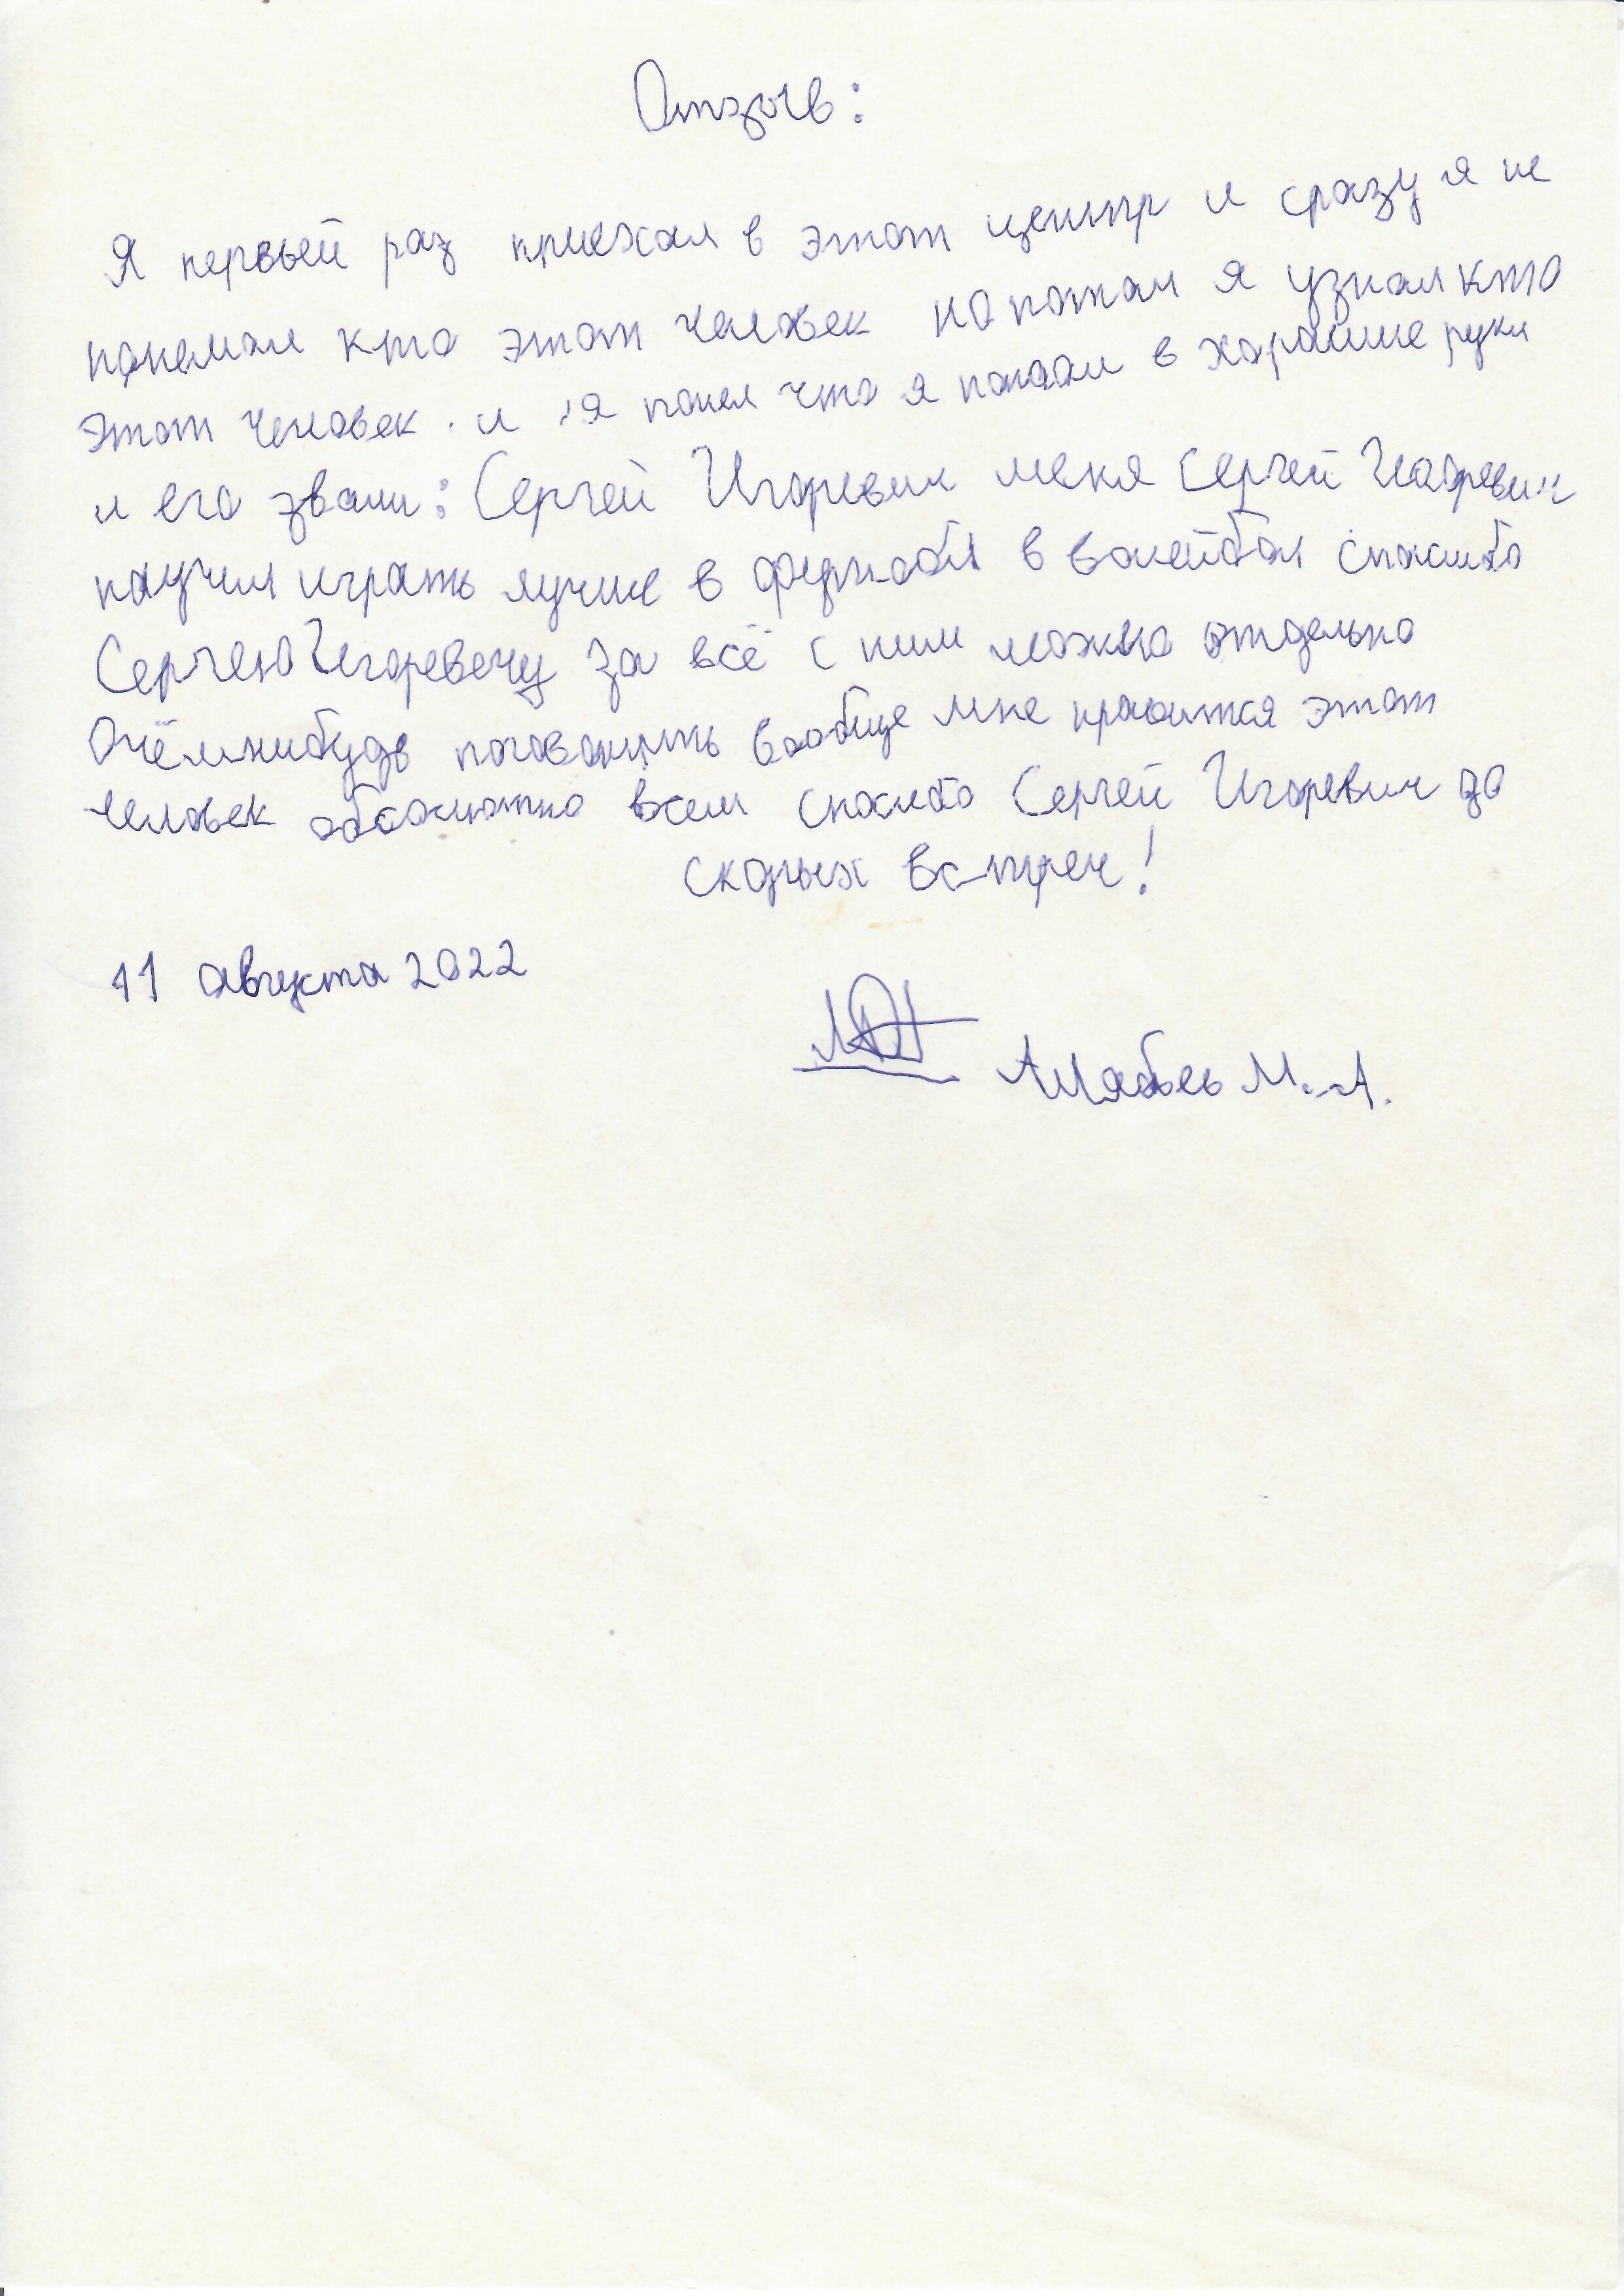 Отзыв:
Я первый раз приехал в этот центр и сразу я не
понемал кто этот человек но потом я узнал кто
этот человек. и я понел что я попал в хорошие руки
и его звали: Сергей Игоревич меня Сергей Игоревич
научил играть лучше в футбол в волейбол спасибо
Сергею Игоревечу за всё с ним можно отдельно
Очёмнибудь поговорить вообще мне нравится этот
человек обсолютно всем спасибо Сергей Игоревич до
скорых встреч!
11 августа 2022
Алябьев М. А.